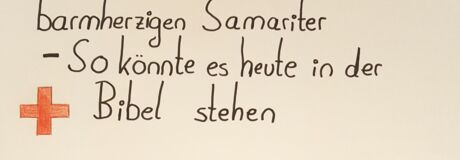 barmherzigen Samariter
- So könnte es heute in der
Bibel stehen